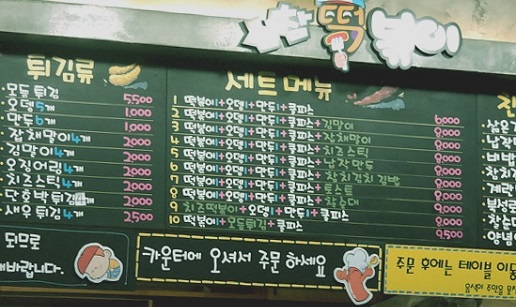 떡볶이
튀김류
모듬 튀김 5,500
오뎅5개 1,000
만두6개 1,000
잡채말이4개 2,000
김말이4개 2,000
오징어링4개 2,000
치즈스틱4개 2,000
단호박튀김4개 2,000
새우튀김4개 2,500
세트메뉴
1 떡볶이+오뎅+만두+쿨피스
2 떡볶이+오뎅+만두+쿨피스+김말이 8,000
3 떡볶이+오뎅+만두+쿨피스+잡채말이 8,000
4 떡볶이+오뎅+만두+쿨피스+치즈스틱
5 떡볶이+오뎅+만두+쿨피스+납작만두
6 떡볶이+오뎅+만두+쿨피스+참치김치김밥
7 떡볶이+오뎅+만두+쿨피스+토스트
8 떡볶이+오뎅+만두+쿨피스+찰순대
9 치즈떡볶이+오뎅+만두+쿨피스
10 떡볶이+모듬튀김+쿨피스
되므로
바랍니다.
카운터에 오셔서 주문 하세요
주문 후에는 테이블 이동
음식이 주인을 못찾